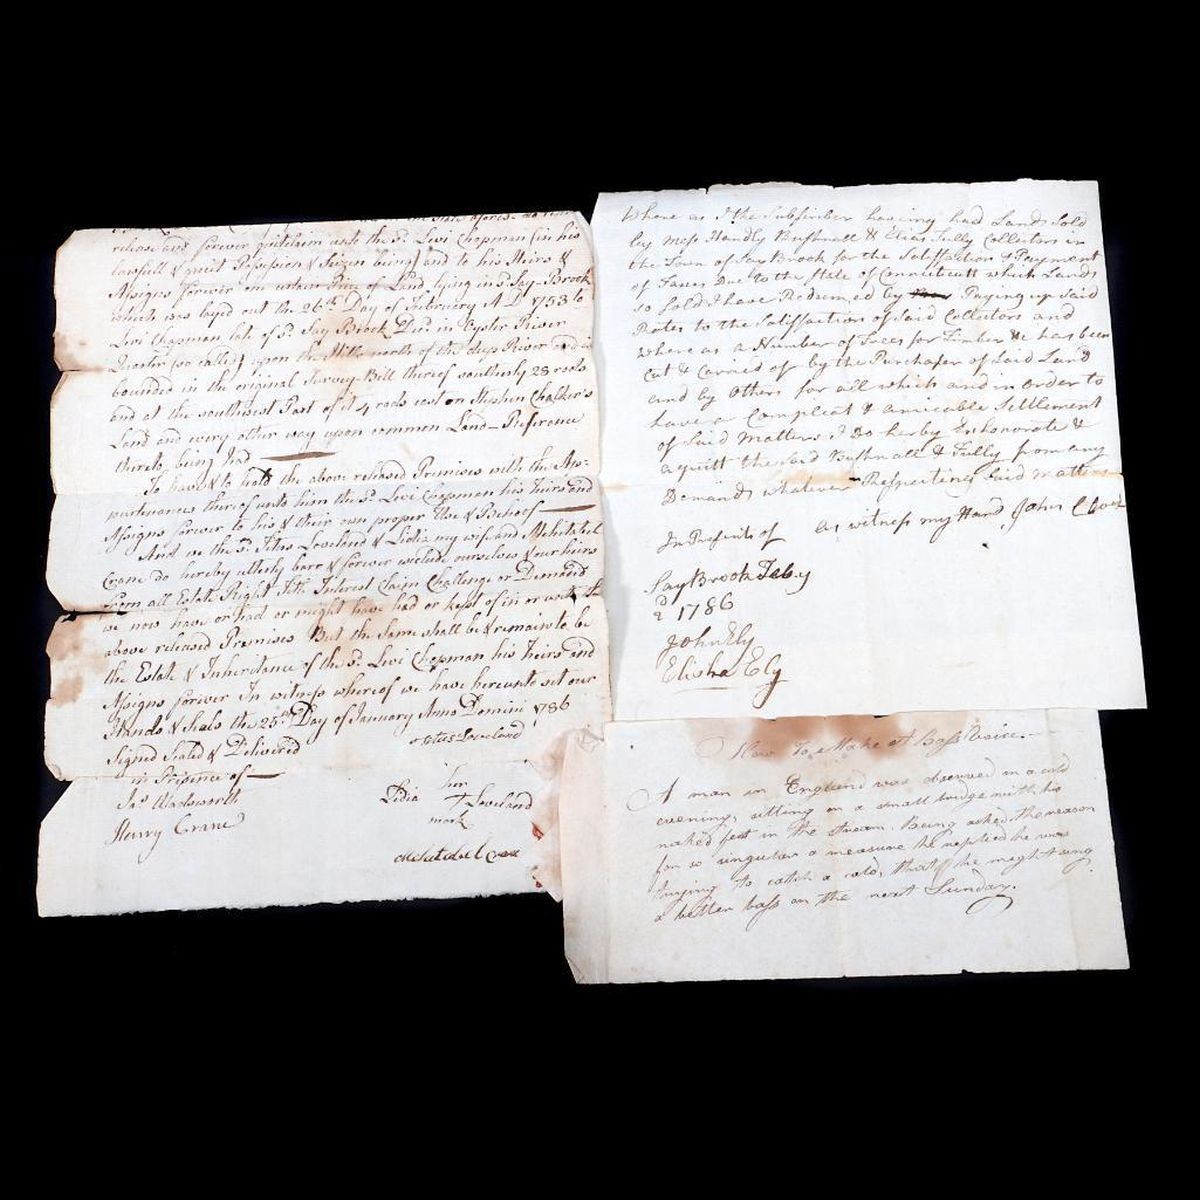 release and forever quitclaim unto the sd. Levi Chapman (in his
lawfull & quiet Possession & Seizen being) and to his Heirs &
Assigns forever one certain Piece of Land, lying in sd. Say-Brook
which was layed out the 26th. Day of February A.D. 1753 to
Levi Chapman late of sd. Say Brook Decd. in Oyster River
Quarter (so called) upon the Hills north of the deep River and is
bounded in the original Survey-Bill thereof southerly 28 rods
and at the southwest Part of it 4 rods east on Stephen Chalker's
Land and every other way upon common Land — Reference
thereto being had —
To have & to hold the above released Premises with the Ap-
purtenances thereof unto him the sd. Levi Chapman his Heirs and
Assigns forever to his & their own proper Use & Behoof —
And we the sd. Titus Loveland & Lidia my wife and Mehitabel
Crane do hereby utterly barr & forever exclude ourselves & our heirs
from all Estate Right Title Interest Claim Challenge or Demand
we now have or had or might have had or kept of in or unto
above released Premises But the Same shall be & remain to be
the Estate & Inheritance of the sd. Levi Chapman his Heirs and
Assigns forever In witness whereof we have hereunto set our
Hands & Seals the 25th. Day of January Anno Domini 1786
Signed Sealed & Delivered
in Presence of —
Titus Loveland
Jas. Wadsworth
Henry Crane
her
Lidia + Loveland
mark
Mehitabel Crane
Where as I the Subscriber haveing had Lands Sold
by Mess Handly Bushnall & Elias Tully Collectors in
the Town of Say Brook for the Satisfaction & Payment
of Taxes Due to the State of Connecticutt which Lands
so Sold I have Redeemed by Paying up Said
Rates to the Satisfaction of Said Collectors and
where as a Number of Trees for Timber &c has been
Cut & Carried of by the Purchaser of Said Land
and by Others for all which and in order to
have a Compleat & amicable Settlement
of Said Matters I Do herby Exhonorate &
aquitt the Said Bushnall & Tully from any
Demands whatever Respecting Said matters
as witness my Hand John
In Presents of
Say Brook Feby
2d 1786
John Ely
Elisha Ely
How To Make A Bass Voice.
A man in England was observed in a cold
evening, sitting on a small bridge with his
naked feet in the stream. Being asked the reason
for so singular a measure he replied he was
trying to catch a cold, that he might sing
a better bass on the next Sunday.